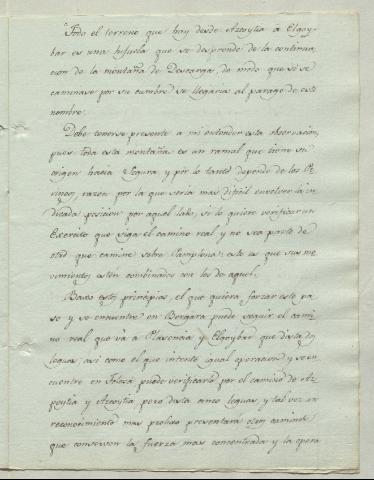 Todo el terreno que hay desde Azcoytia á Elgoy-
bar es una hijuela que se desprende de la continua-
cion de la montaña de Descarga, de modo que si se
caminase por su cumbre se llegaria al parage de este
nombre.
Debe tenerse presente a mi entender esta observacion,
pues toda esta montaña es un ramal que tiene su
origen hacia Segura, y por lo tanto depende de los Pi-
rineos, razon por la que seria mas dificil envolver la in-
dicada posicion por aquel lado, si lo quiere verificar un
Exercito que siga el camino real y no sea parte de
otro que camine sobre Pamplona; esto es que sus mo-
vimientos estén combinados con los de aquel.
Bajo estos principios, el que quiera forzar este pa-
so y se encuentre en Bergara puede seguir el cami-
no real que vá a Plasencia y Elgoybar que dista dos
leguas; asi como el que intente igual operacion y se en-
cuentre en Tolosa puede verificarla por el camino de Az-
peytia y Azcoytia, pero dista cinco leguas, y tal vez un
reconocimiento mas prolixo presentará otros caminos
que conserven la fuerza mas concentrada y la opera